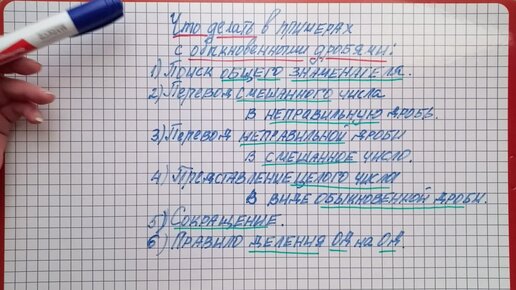 Что делать в примерах
с обыкновенными дробями:
1) Поиск общего знаменателя.
2) Перевод смешанного числа
в неправильную дробь.
3) Перевод неправильной дроби
в смешанное число.
4) Представление целого числа
в виде обыкновенной дроби.
5) Сокращение.
6) Правило деления ОД на ОД.